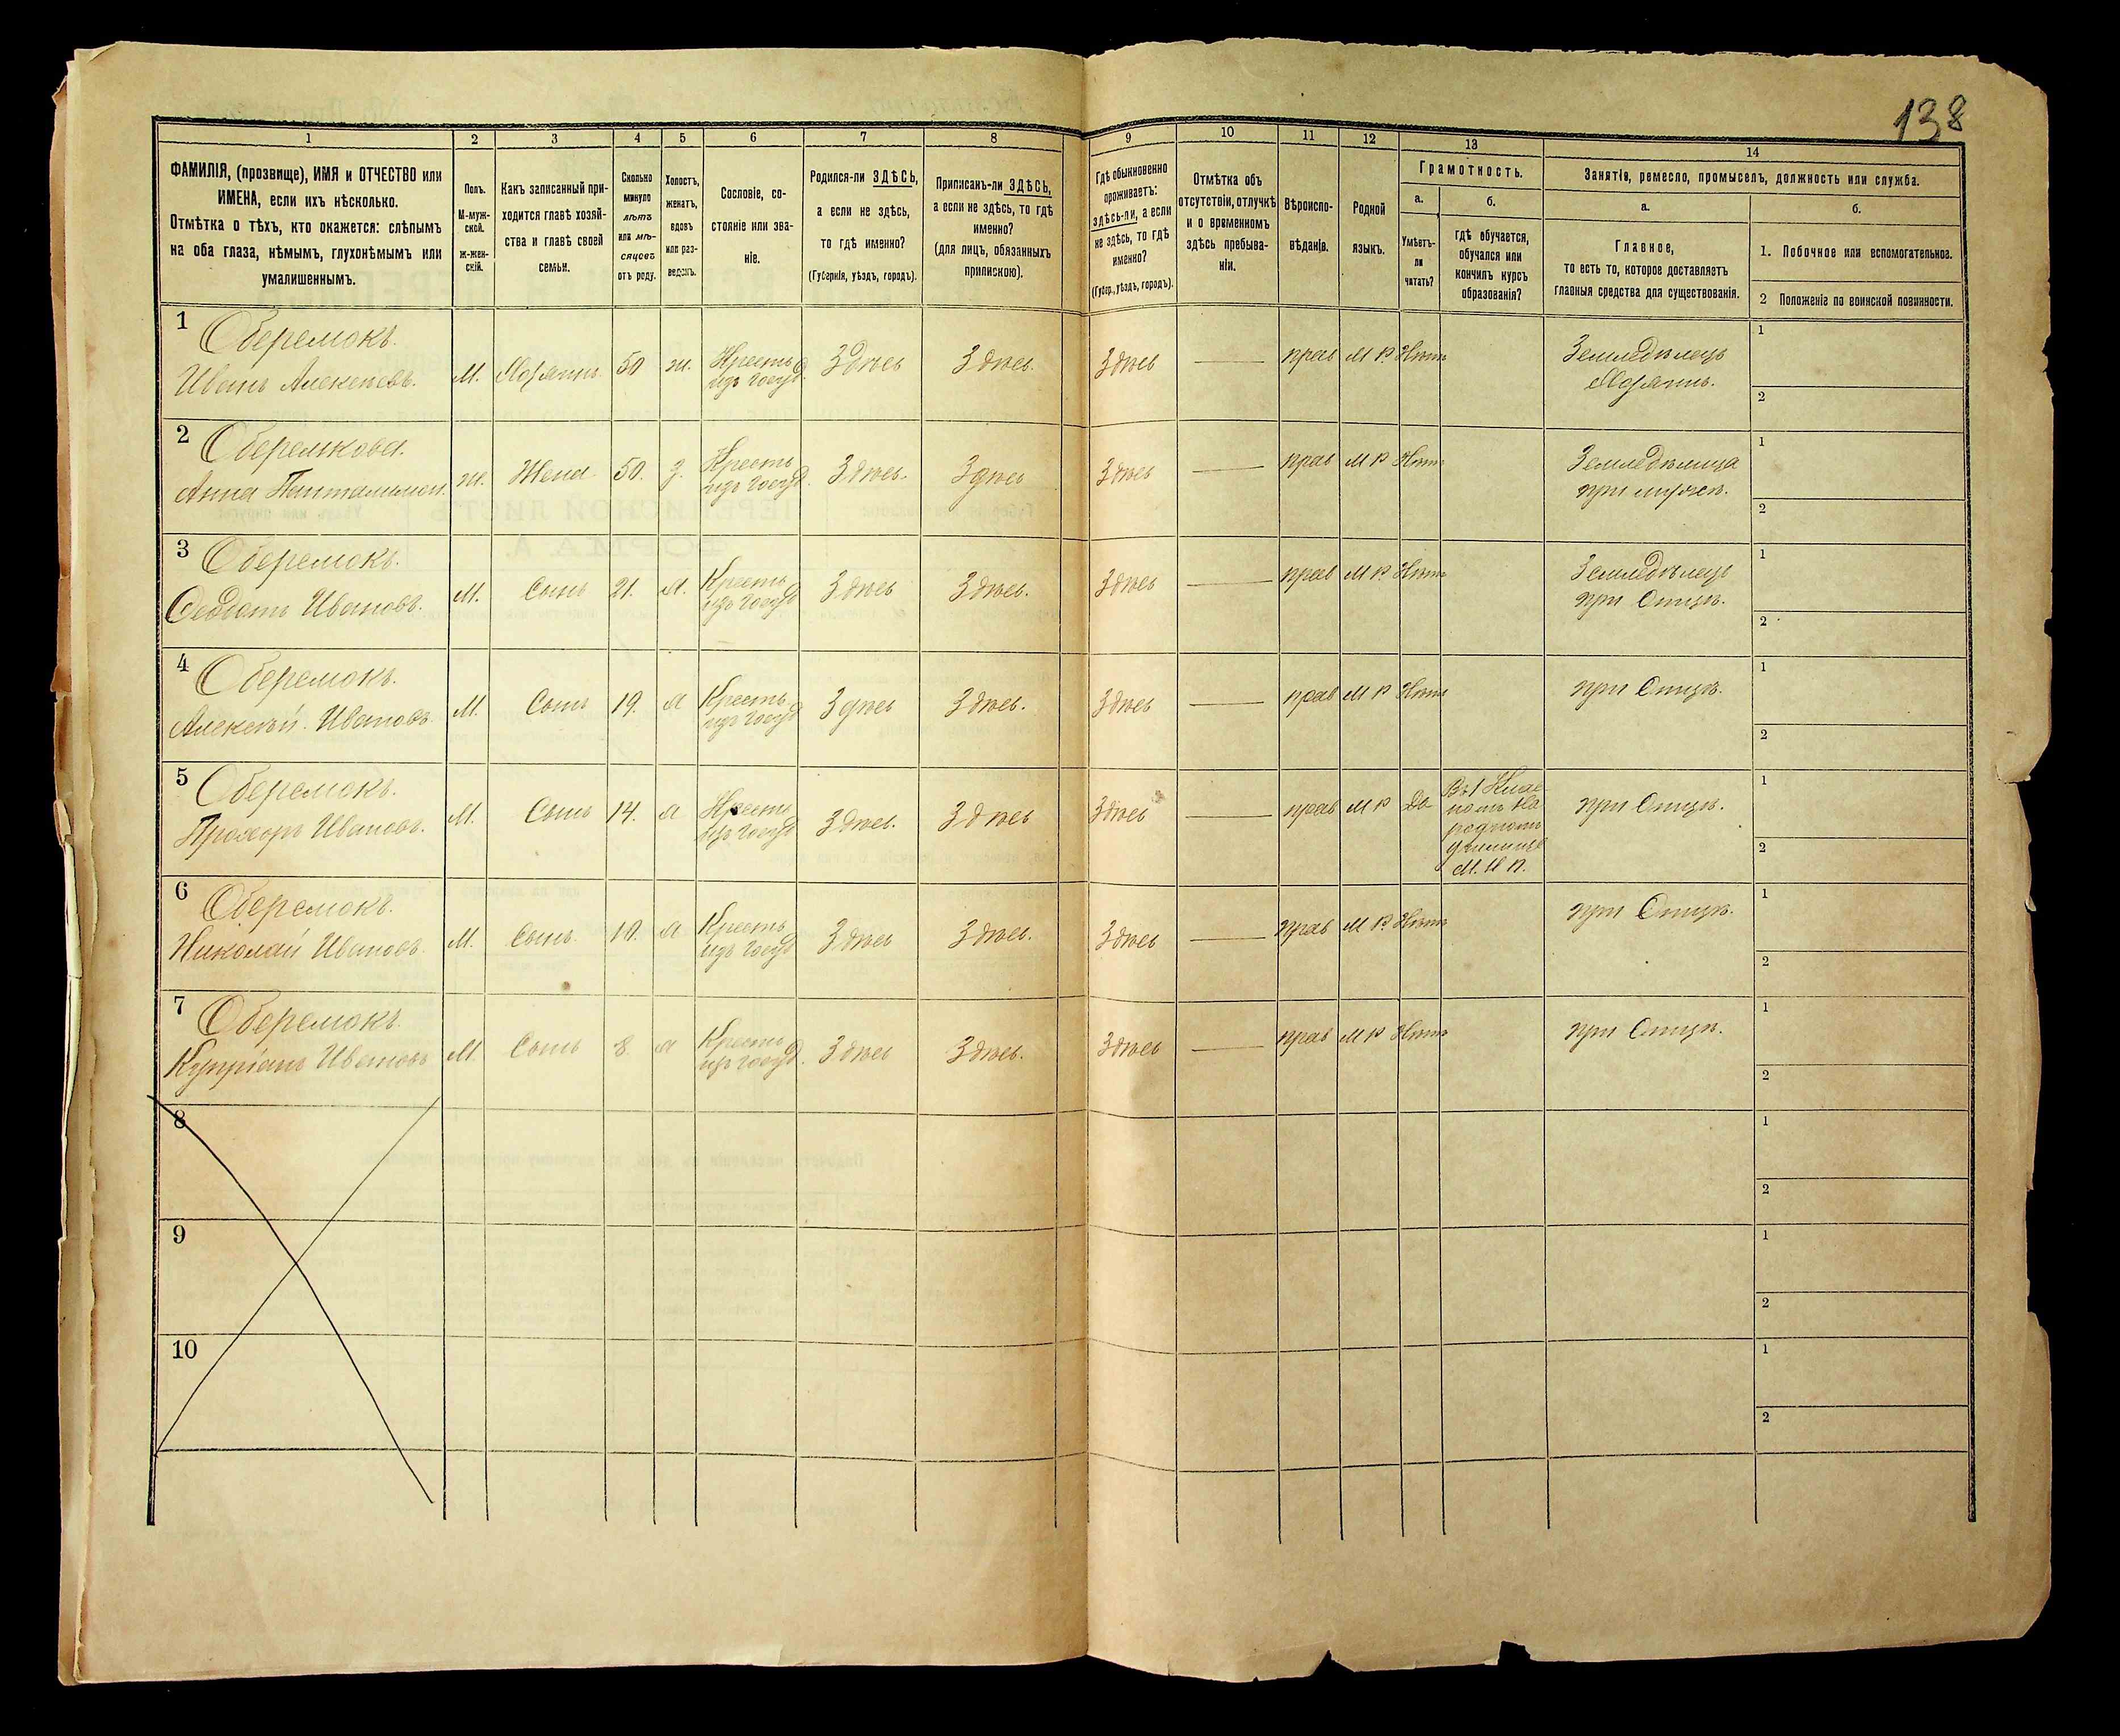 138
1 2 3 4 5 6 7 8 9 10 11 12 13 14
ФАМИЛІЯ, (прозвище), ИМЯ и ОТЧЕСТВО или
ИМЕНА, если ихъ нѣсколько.
Отмѣтка о тѣхъ, кто окажется: слѣпымъ
на оба глаза, нѣмымъ, глухонѣмымъ или
умалишеннымъ.
Полъ.
М-муж-
ской.
ж-жен-
скій.
Какъ записанный при-
ходится главѣ хозяй-
ства и главѣ своей
семьи.
Сколько
минуло
лѣтъ
или мѣ-
сяцевъ
отъ роду.
Холостъ,
женатъ,
вдовъ
или раз-
веденъ.
Сословіе, со-
стояніе или зва-
ніе.
Родился-ли ЗДѢСЬ,
а если не здѣсь,
то гдѣ именно?
(Губернія, уѣздъ, городъ).
Приписанъ-ли ЗДѢСЬ,
а если не здѣсь, то гдѣ
именно?
(для лицъ, обязанныхъ
припискою).
Гдѣ обыкновенно
проживаетъ:
здѣсь-ли, а если
не здѣсь, то гдѣ
именно?
(Губер., уѣздъ, городъ).
Отмѣтка объ
отсутствіи, отлучкѣ
и о временномъ
здѣсь пребыва-
ніи.
Вѣроиспо-
вѣданіе.
Родной
языкъ.
Грамотность.
а.
Умѣетъ-
ли
читать?
б.
гдѣ обучается,
обучался или
кончилъ курсъ
образованія?
Занятіе, ремесло, промыселъ, должность или служба.
а.
Главное,
то есть то, которое доставляетъ
главныя средства для существованія.
б.
1. Побочное или вспомогательное.
2 Положеніе по воинской повинности.
1 Оберемокъ.
Иванъ Алексѣевъ. М. Хозяинъ 50 ж. Кресть. изъ госуд. Здѣсь Здѣсь. Здѣсь — прав М Р Нѣтъ Земледѣлецъ Хозяинъ. 1 2
2 Оберемкова.
Анна Ж. Жена 50. з. Кресть изъ госуд. Здѣсь. Здѣсь Здѣсь — прав М Р Нѣтъ Земледѣлица при мужѣ. 1 2
3 Оберемокъ.
Ѳеодотъ Ивановъ. М. Сынъ 21. х. Кресть изъ госуд Здѣсь Здѣсь. Здѣсь — прав М Р Нѣтъ Земледѣлецъ при Отцѣ. 1 2
4 Оберемокъ.
Алексѣй Ивановъ М. Сынъ 19. х Кресть изъ госуд Здѣсь Здѣсь. Здѣсь — прав М Р Нѣтъ при Отцѣ. 1 2
5 Оберемокъ.
Прохоръ Ивановъ. М. Сынъ 14. х Кресть изъ госуд Здѣсь. Здѣсь Здѣсь — прав М Р Да Въ 1 Клас номъ На родномъ училищѣ М. Н П. при Отцѣ. 1 2
6 Оберемокъ.
Николай Ивановъ М. Сынъ. 10. х Кресть изъ госуд Здѣсь Здѣсь. Здѣсь — прав М Р Нѣтъ при Отцѣ. 1 2
7 Оберемокъ.
Купріанъ Ивановъ М. Сынъ 8. х Кресть изъ госуд. Здѣсь Здѣсь. Здѣсь — прав М Р Нѣтъ при Отцѣ. 1 2
8 1 2
9 1 2
10 1 2